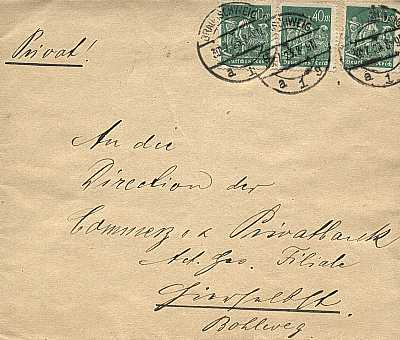 BRAUNSCHWEIG
40 M 40 M 40
Deutsches Reich Deutsches Reich
a 1 a 1 g a
Privat!
An die
Direction der
Commerz u Privatbank
Act. Ges. Filiale
Hierselbst.
Bohlweg